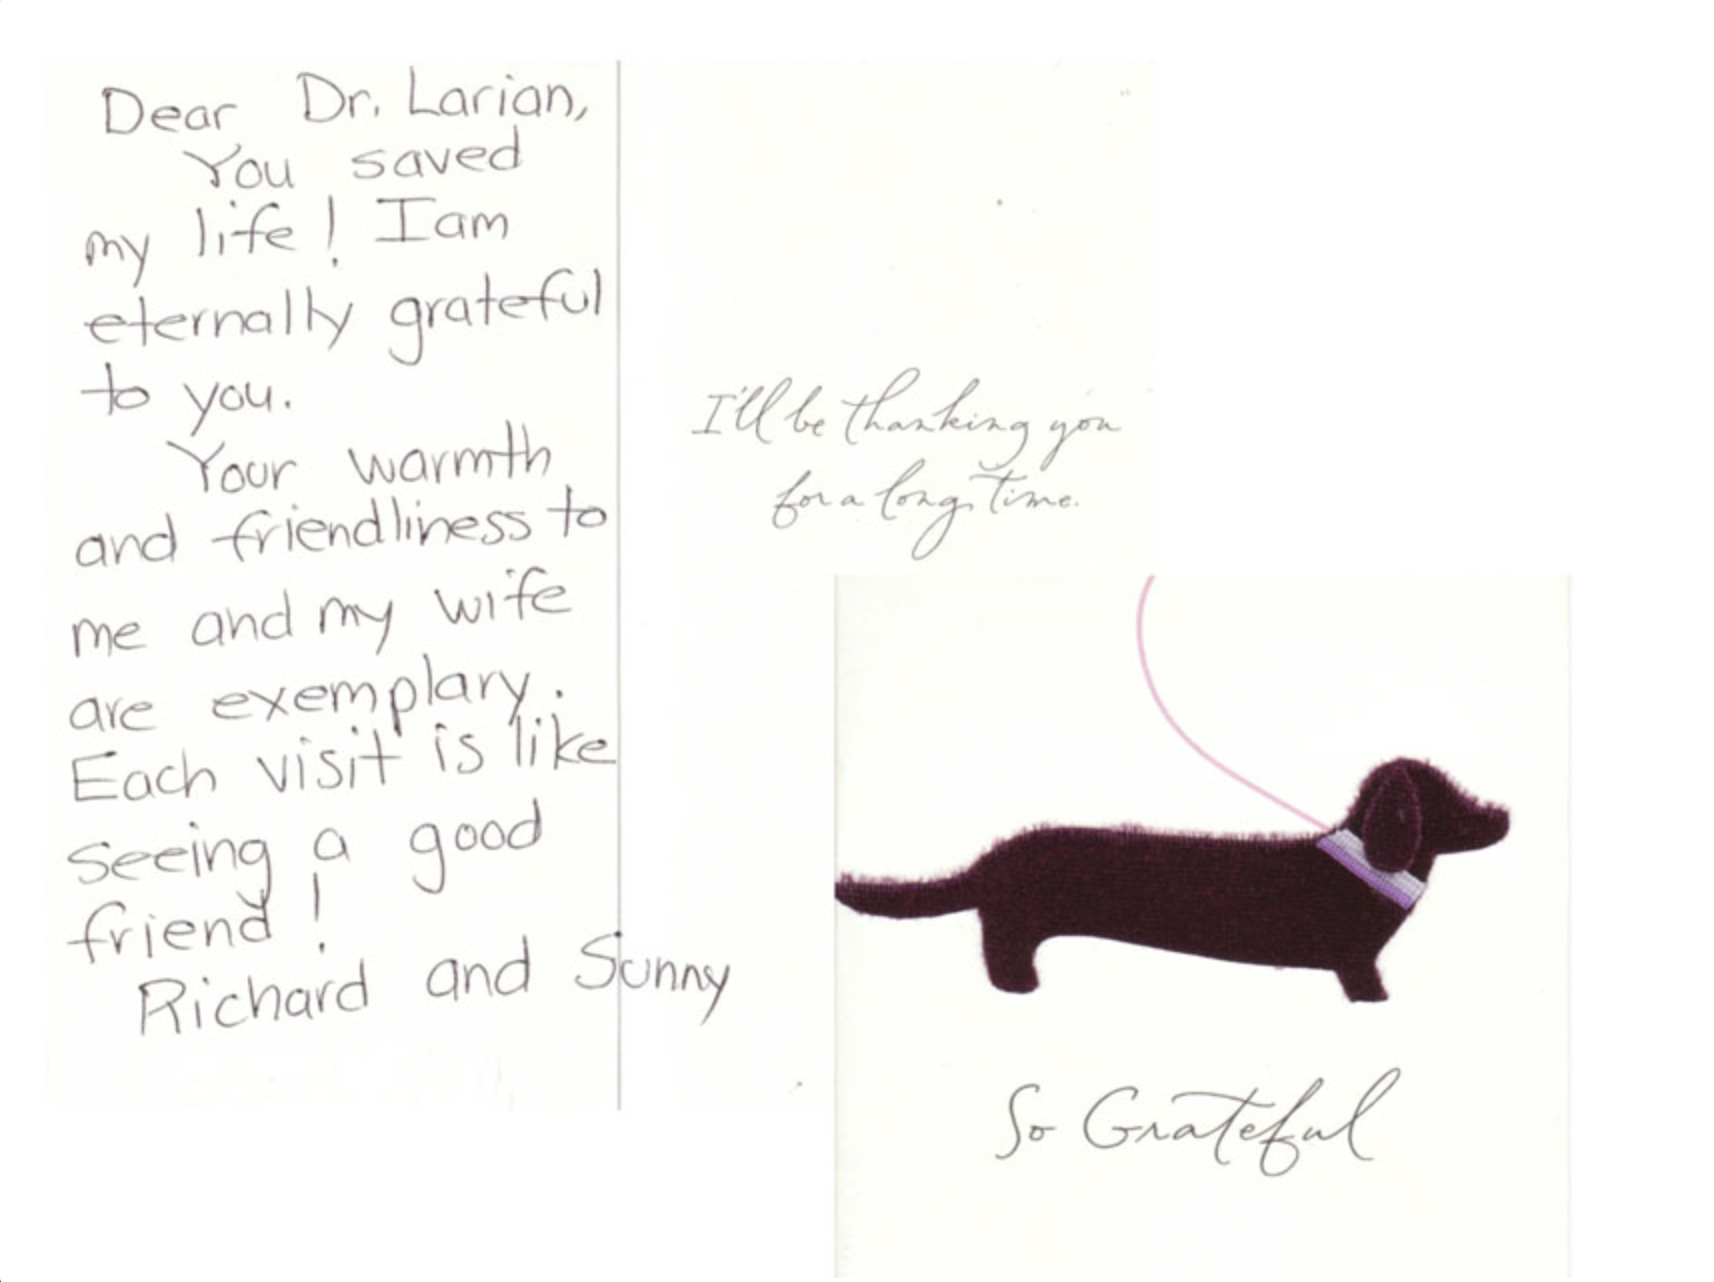 Dear Dr. Larian,
You saved
my life! I am
eternally grateful
to you.
Your warmth
and friendliness to
me and my wife
are exemplary.
Each visit is like
seeing a good
friend!
Richard and Sunny
I'll be thanking you
for a long time.
So Grateful